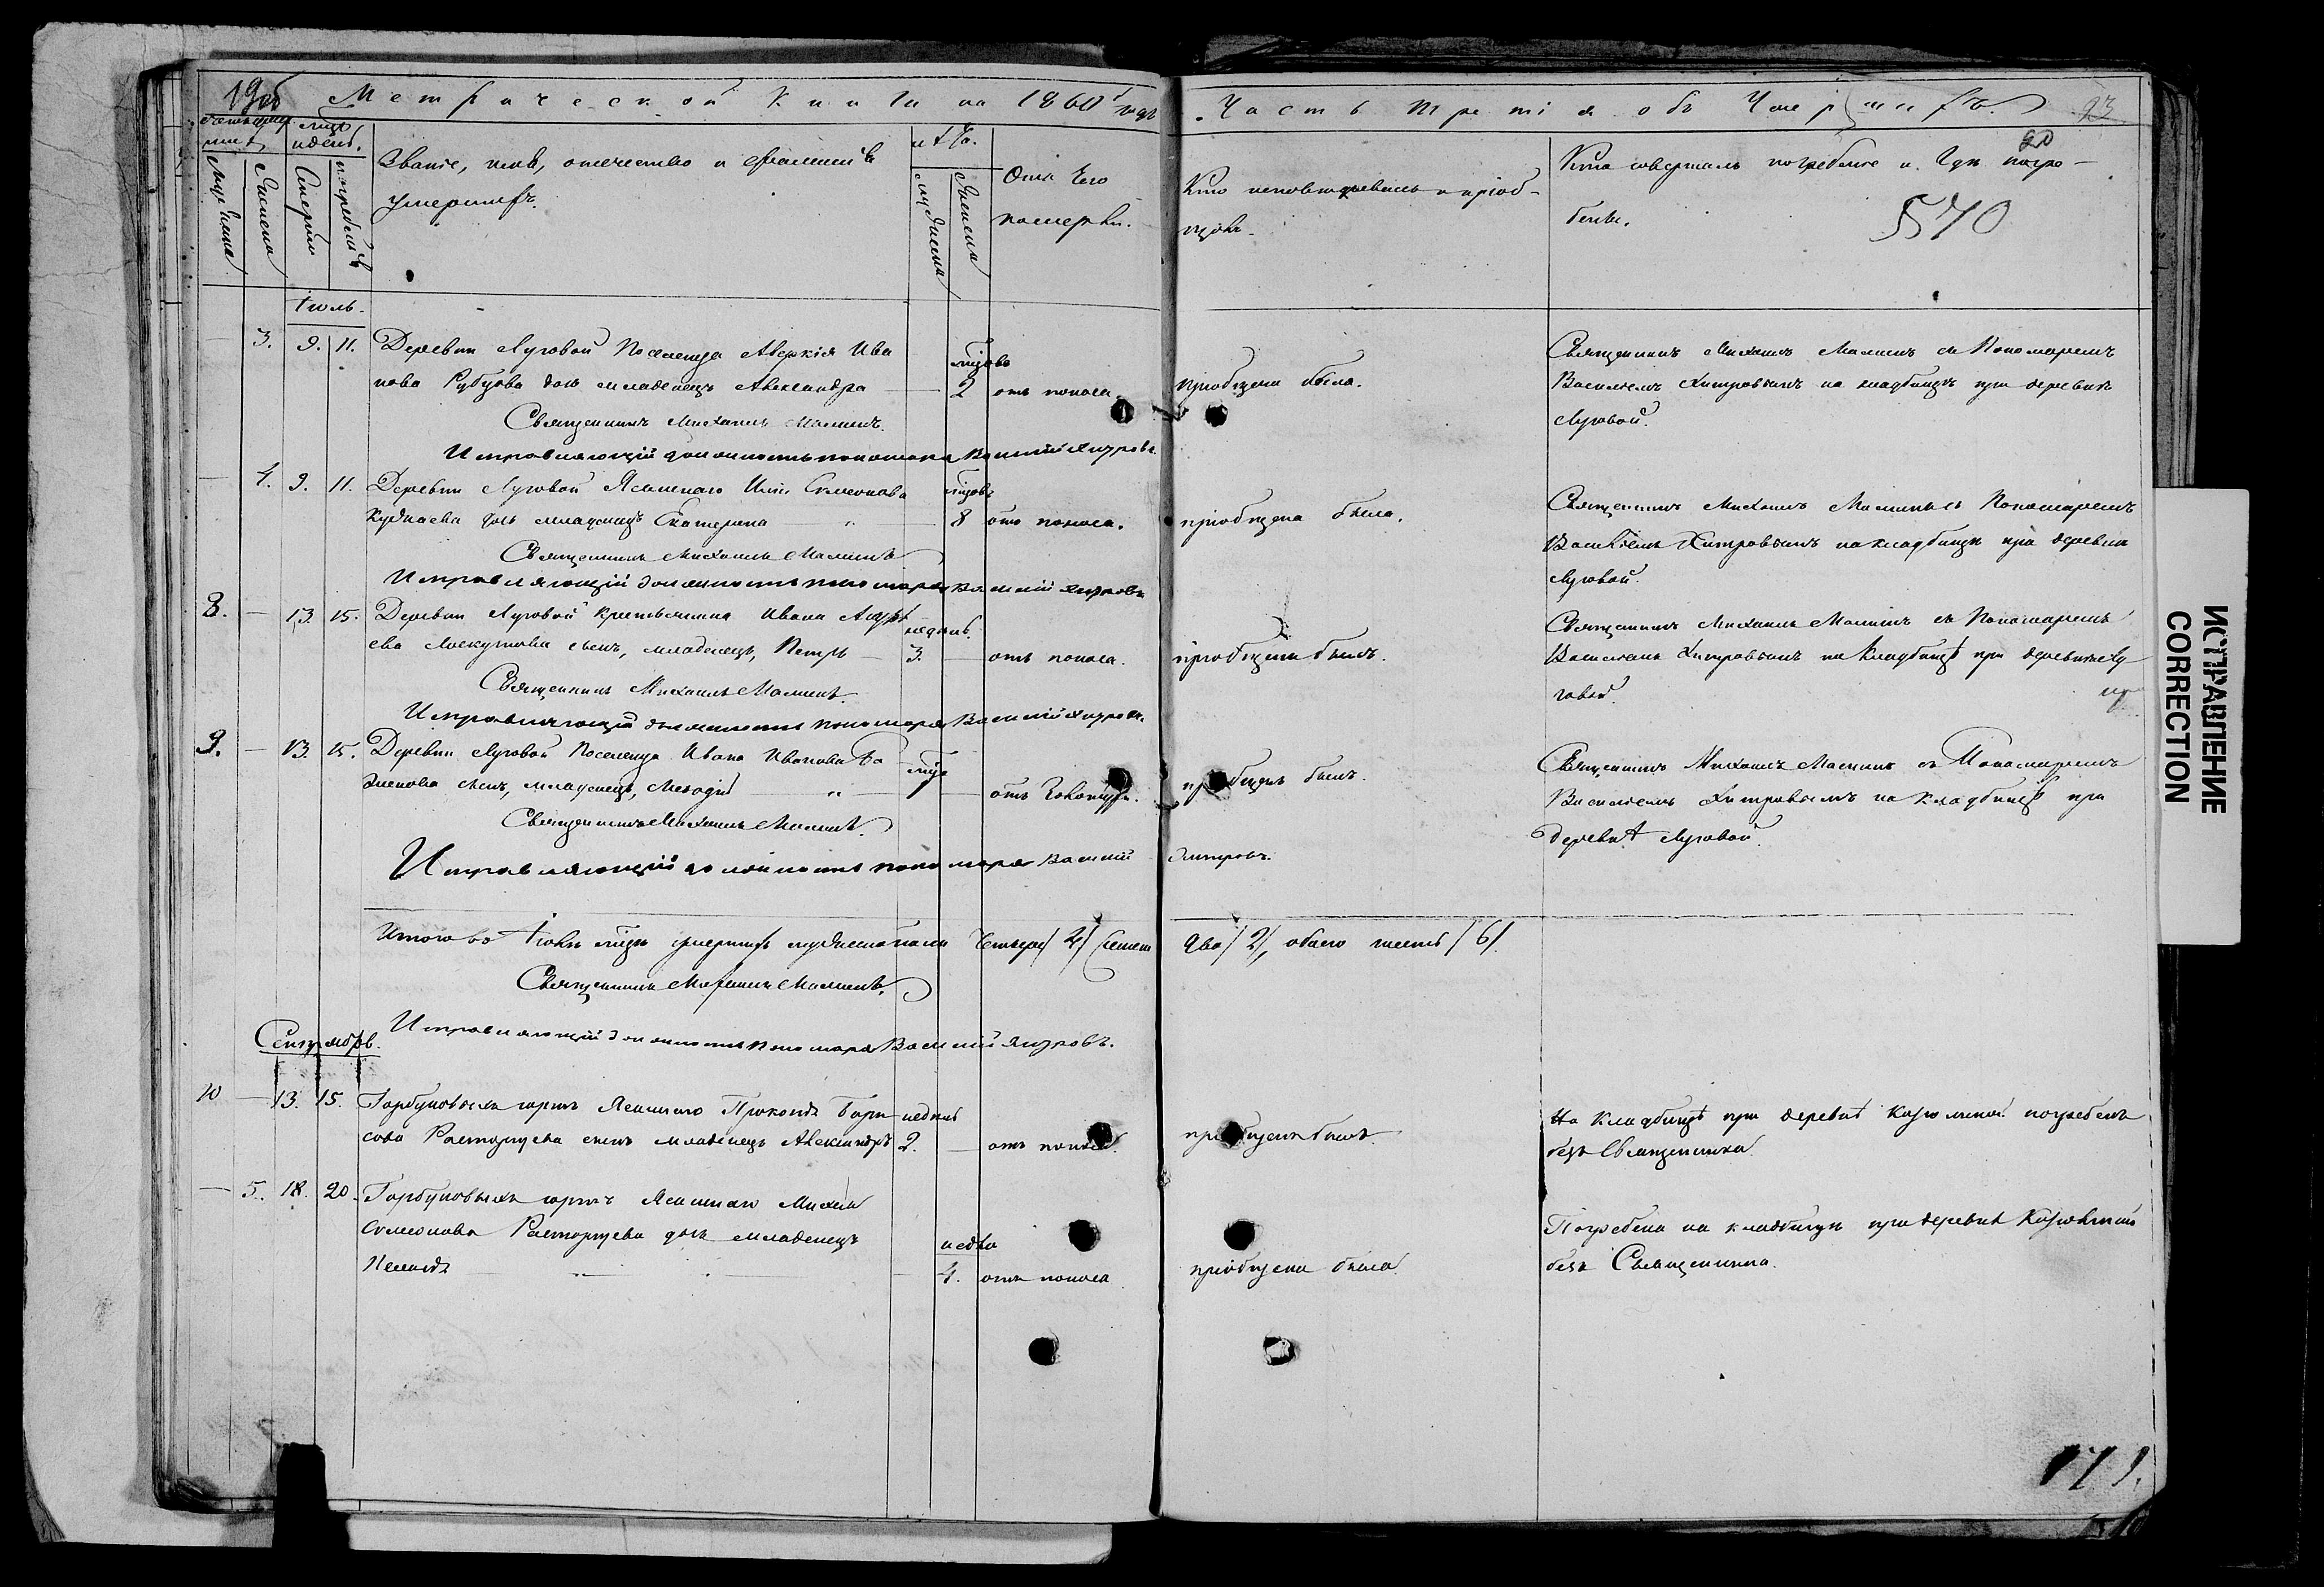 Метрической Книги на 1860 годъ
Званіе, имя, отчество и фамилія
умершихъ.
Лѣта.
мужчина
женска
Отъ чего
померъ.
мужчина
женска
Смерти
погребенія
Іюль.
3. 9. 11. Деревни Луговой Поселенца Аверкія Ива
нова Рубцова дочь младенецъ Александра 2 отъ поноса.
Священникъ Михаилъ Малинъ.
Исправляющій должность пономаря Василій Хитровъ.
4. 9. 11. Деревни Луговой Ясашнаго Симеонова
дочь младенецъ Екатерина 8 отъ поноса.
Священникъ Михаилъ Малинъ
Исправляющій должность пономаря Василій Хитровъ
8. 13. 15. Деревни Луговой крестьянина Ивана Андре
ева Лоскутова сынъ, младенецъ, Петръ 3. отъ поноса.
недѣль
Священникъ Михаилъ Малинъ.
Исправляющій должность пономаря Василій Хитровъ.
9. 13. 15. Деревни Луговой Поселенца Ивана Иванова Ба
женова сынъ, младенецъ, Меѳодій 1 отъ
Священникъ Михаилъ Малинъ.
Исправляющій должность пономаря Василій Хитровъ.
Итого въ Іюлѣ мѣсяцѣ умершихъ мужеска пола четыре /4/ женска
Священникъ Михаилъ Малинъ.
Исправляющій должность пономаря Василій Хитровъ.
Сентябрь.
10 13. 15. Горбуновыхъ юртъ Ясашнаго Прокопія Бори
сова Расторгуева сынъ младенецъ Александръ 2. отъ поноса.
недѣль
5. 18. 20. Горбуновыхъ юртъ Ясашнаго
Симеонова Расторгуева дочь младенецъ
Пелагія 4. отъ поноса
Часть третія объ Умершихъ.
93
20
Кто исповѣдывалъ и пріоб-
щалъ.
Кто совершалъ погребеніе и гдѣ погре-
бены.
570
пріобщена была.
Священникъ Михаилъ Малинъ съ Пономаремъ
Василіемъ Хитровымъ на кладбищѣ при деревнѣ
Луговой.
пріобщена была.
Священникъ Михаилъ Малинъ съ Пономаремъ
Василіемъ Хитровымъ на кладбищѣ при деревнѣ
Луговой.
пріобщенъ былъ.
Священникъ Михаилъ Малинъ съ Пономаремъ
Василіемъ Хитровымъ на кладбищѣ при деревнѣ Лу
говой.
пріобщенъ былъ.
Священникъ Михаилъ Малинъ съ Пономаремъ
Василіемъ Хитровымъ на кладбищѣ при
деревнѣ Луговой.
два /2/, обоего шесть /6/.
пріобщенъ былъ.
На кладбищѣ при деревнѣ погребенъ
безъ Священника.
пріобщена была.
Погребена на кладбищѣ при деревнѣ
безъ Священника.
171.
ИСПРАВЛЕНИЕ
CORRECTION